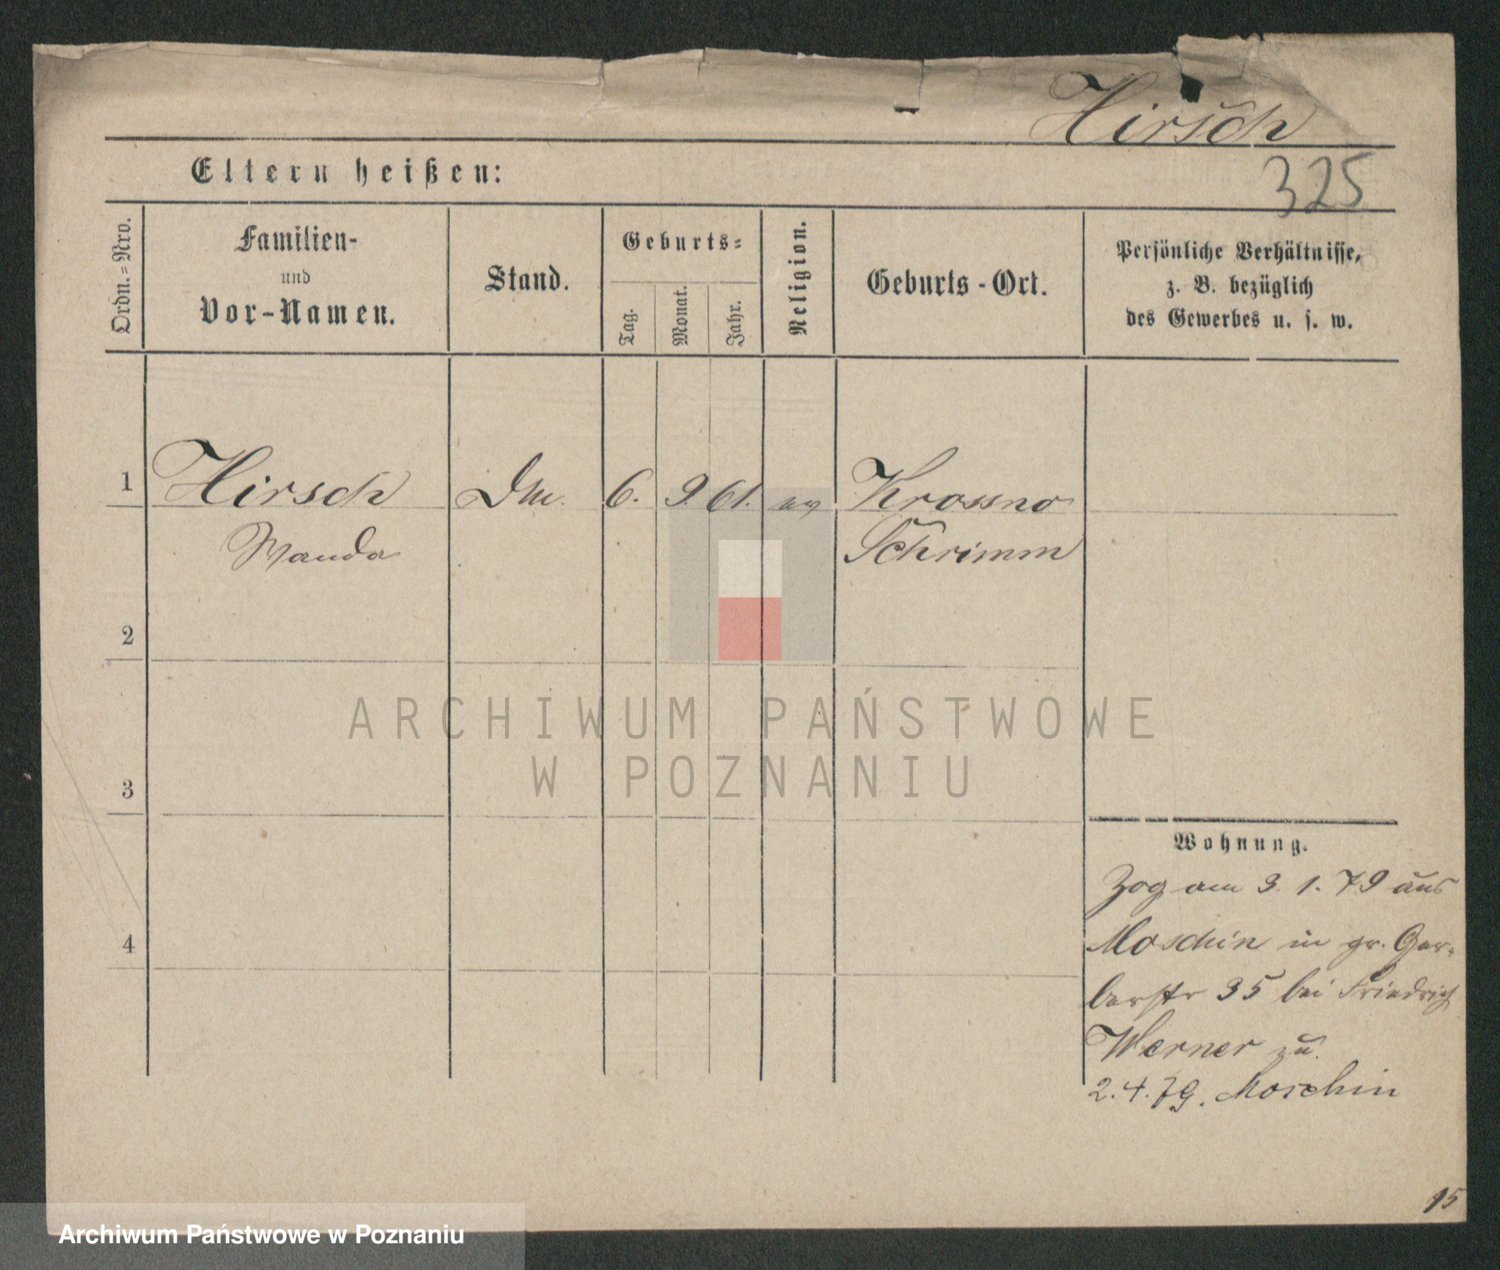 Hirsch
325
Eltern heißen:
Ordn.=Nro.
Familien-
und
Vor-Namen.
Stand.
Geburts=
Tag.
Monat.
Jahr.
Religion.
Geburts-Ort.
Persönliche Verhältnisse,
z. B. bezüglich
des Gewerbes u. s. w.
1 Hirsch 6. 9. 61. Krossno
Wanda Schrimm
2
3
4
ARCHIWUM PAŃSTWOWE
W POZNANIU
Wohnung.
Zog am 3. 1. 79 aus
Moschin in gr. Ger-
berstr 35 bei Friedrich
Werner zu.
2. 4. 79. Moschin
15
Archiwum Państwowe w Poznaniu